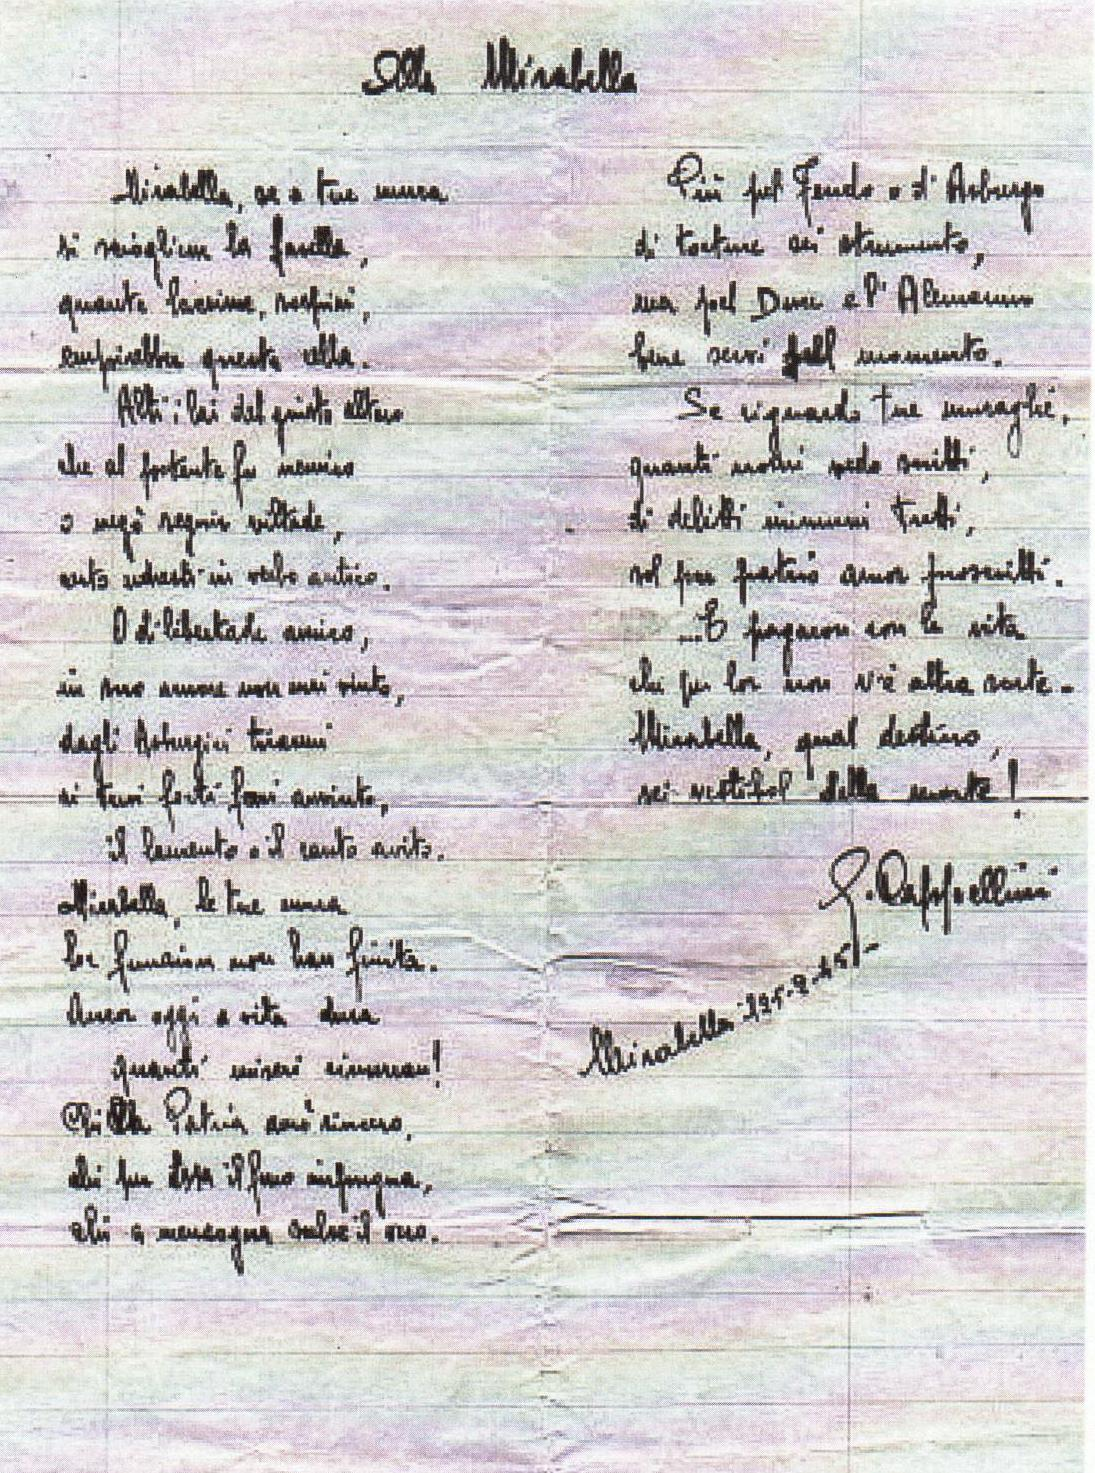 Alla Mirabella
Mirabella, se a tue mura
si sciogliesse la favella,
quante lacrime, sospiri,
empirebber questa cella.
Alti i lai del giusto altero
che al potente fu nemico
o negò seguir viltade,
certo udresti in verbo antico.
O di libertade amico,
in suo amore non mai vinto,
dagli Asburgici tiranni
ai tuoi forti avvinto,
il lamento o il canto avito.
Mirabella, le tue mura
lor funzion non han finita.
Ancor oggi a vita dura
quanti miseri
Chi alla Patria amò sincero,
chi per Essa il ferro impugna,
chi a menzogna il vero.
Più pel Feudo o d'Asburgo
di torture sei strumento,
ma pel Duce e l'Alemanno
bene servi pel momento.
Se riguardo tue muraglie,
quanti nomi vedo scritti,
di delitti immuni tutti,
sol per patrio amor proscritti.
...E pagaron con la vita
chè per lor non v'è altra sorte.
Mirabella, qual destino,
sei vestibol della morte!
G. Cappellini
Mirabella